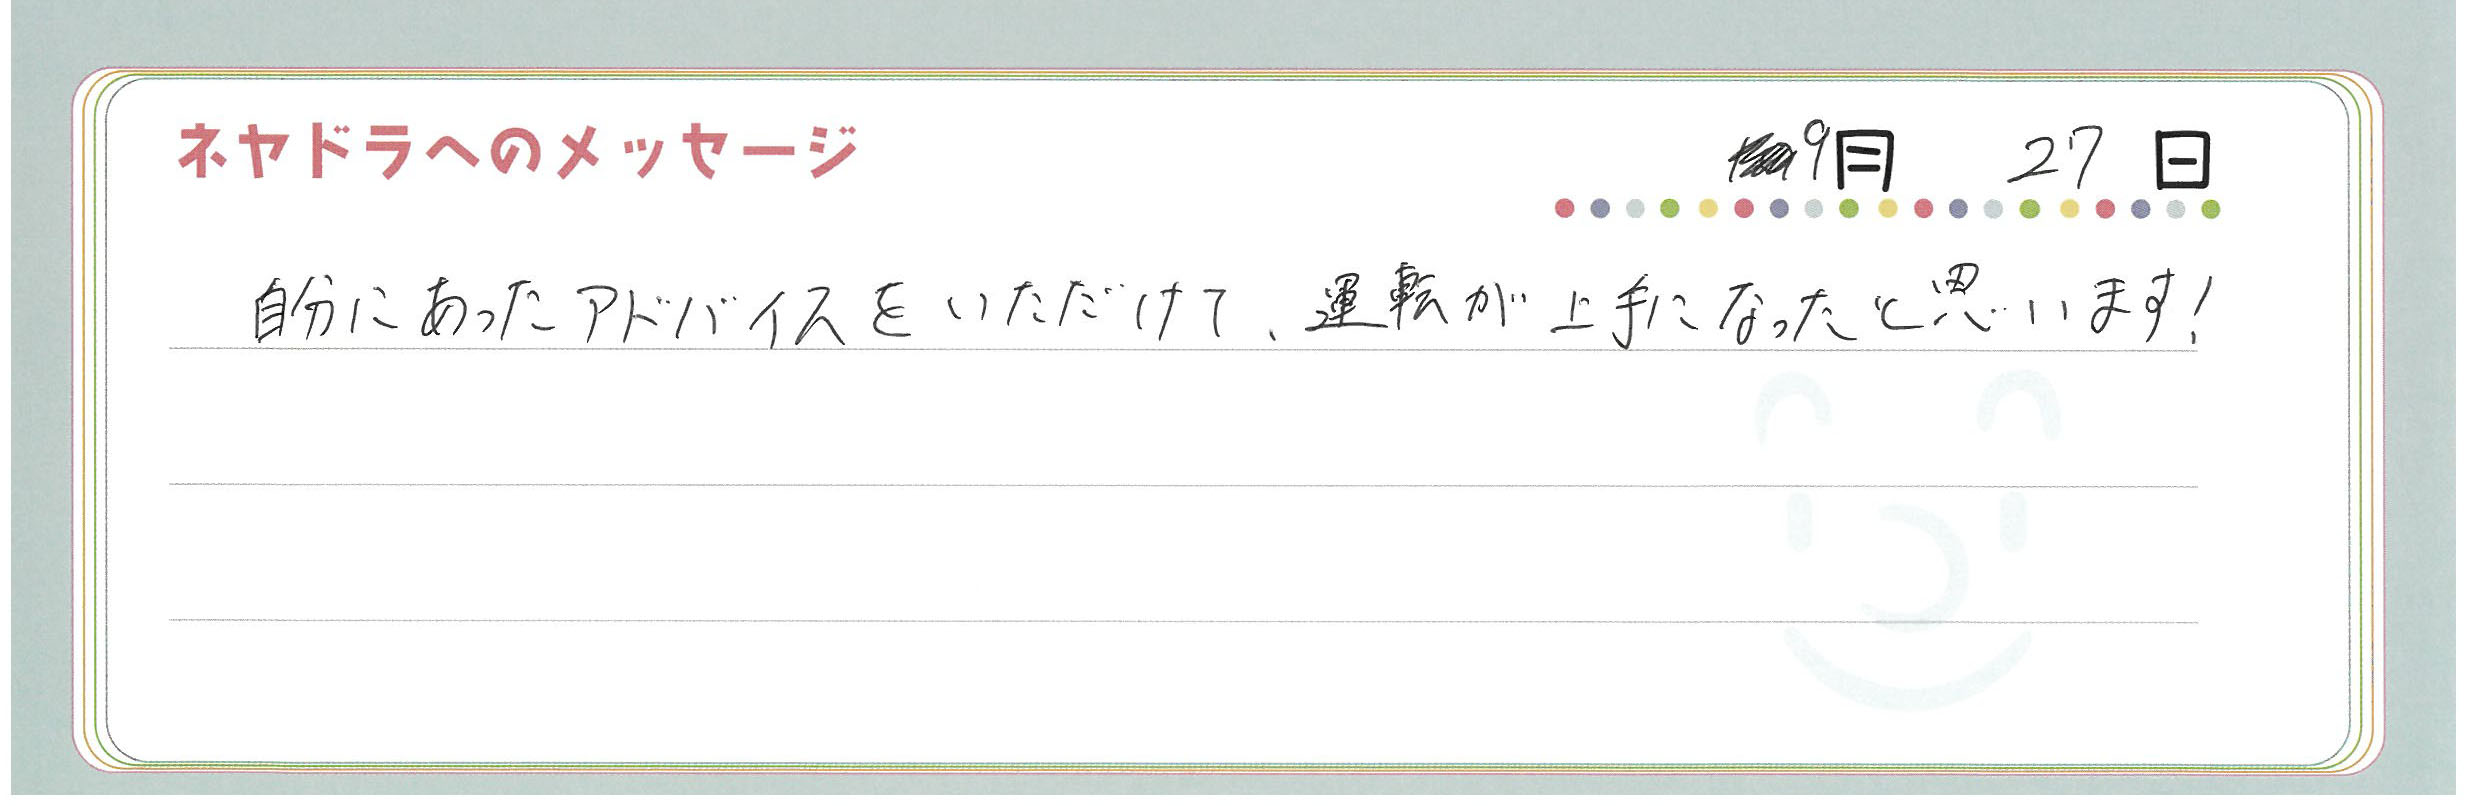 ネヤドラへのメッセージ
9月 27日
自分にあったアドバイスをいただけて、運転が上手になったと思います!